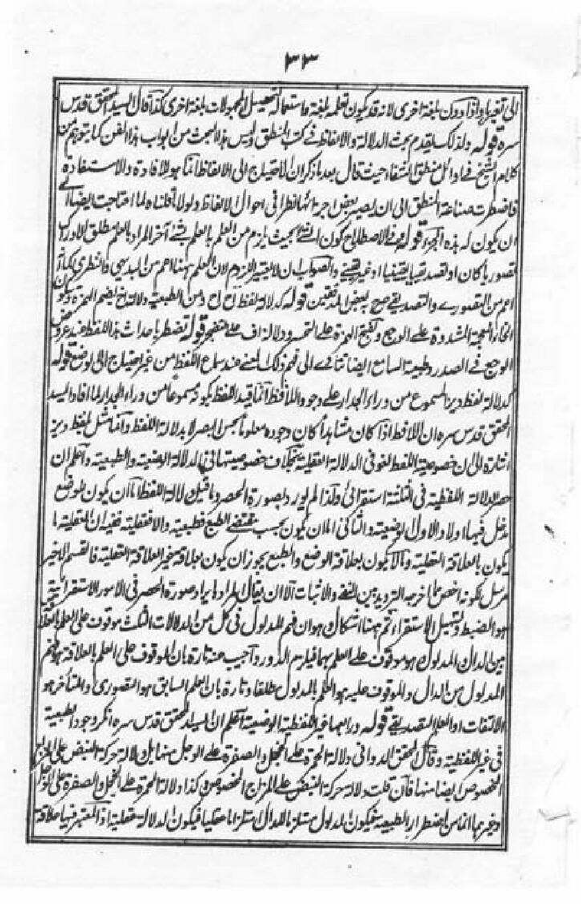 ٣٣
الى تغيرها واذا دون بلغة اخرى لانه قد يكون تعلمه بلغة واستعماله لتحصيل المجهولات بلغة اخرى كذا قال السيد المحقق قدس
سره قوله ولذلك يقدم بحث الدلالة والالفاظ فى كتب المنطق وليس هذا البحث من ابواب هذا الفن كما يتوهم من
كلام الشيخ فى اوائل منطق الشفا حيث قال بعد ما ذكر ان الاحتياج الى الالفاظ انما هو للافادة والاستفادة
فاضطرت صناعة المنطق الى ان يصير بعض اجزائها نظرا فى احوال الالفاظ ولولا ما قلناه لما احتاجت ايضا الى
ان يكون له هذه الجزء قوله فى الاصطلاح كون الشئ بحيث يلزم من العلم به العلم بشئ آخر المراد بالعلم مطلق الادراك
تصوريا كان او تصديقيا يقينيا او غير يقينى والصواب ان لا يعتبر اللزوم لان العلم ههنا اعم من البديهى والنظرى كما انه
اعم من التصورى والتصديقى صرح به بعض المدققين قوله كدلالة لفظ اح اح ومن الطبعية دلالة اخ بضم الهمزة وسكون
الخاء المعجمة المشددة على الوجع وبفتح الهمزة على التحسر ودلالة اف على التضجر قوله تضطر باحداث هذا اللفظ عند عروض
الوجع فى الصدر وطبيعة السامع ايضا تتأدى الى فهم ذلك المعنى عند سماع اللفظ من غير احتياج الى الوضع قوله
كدلالة لفظ ديز المسموع من وراء الجدار على وجود اللافظ انما قيد اللفظ بكونه مسموعا من وراء الجدار لما افاد السيد
المحقق قدس سره ان اللافظ اذا كان مشاهدا كان وجوده معلوما بحس البصر لا بدلالة اللفظ وانما مثل بلفظ ديز
اشارة الى ان خصوصية اللفظ لغو فى الدلالة العقلية بخلاف خصوصيتها فى الدلالة الوضعية والطبعية واعلم ان
حصر الدلالة اللفظية فى الثلثة استقرائى ولذا لم يورد بصورة الحصر وما قيل دلالة اللفظ اما ان يكون للوضع
مدخل فيها اولا والاول الوضعية والثانى اما ان يكون بحسب مقتضى الطبع فطبعية والا فعقلية ففيه ان العقلية ما
يكون بالعلاقة العقلية وما لا يكون بعلاقة الوضع والطبع يجوز ان يكون بعلاقة غير العلاقة العقلية فالقسم الاخير
مرسل لكونه اخص مما اخرجه الترديد بين النفى والاثبات الا ان يقال المراد بايراد صورة الحصر فى الامور الاستقرائية
هو الضبط وتسهيل الاستقراء ثم ههنا اشكال وهو ان فهم المدلول فى كل من الدلالات الثلث موقوف على العلم بالعلاقة
بين الدال والمدلول وهو موقوف على العلم بهما فيلزم الدور واجيب عنه تارة بان الموقوف على العلم بالعلاقة هو فهم
المدلول من الدال والموقوف عليه هو العلم بالمدلول مطلقا وتارة بان العلم السابق هو التصورى والمتأخر هو
الالتفات او العلم التصديقى قوله وراءها غير اللفظية الوضعية اعلم ان السيد المحقق قدس سره انكر وجود الطبعية
فى غير اللفظية وقال المحقق الدوانى دلالة الحمرة على الخجل والصفرة على الوجل منها بل دلالة حركة النبض على المزاج
المخصوص ايضا منها فان قلت دلالة حركة النبض على المزاج المخصوص وكذا دلالة الحمرة على الخجل والصفرة على الوجل
وغيرها لاضطرار بالطبيعة فيكون المدلول مستلزما للدال استلزاما عقليا فيكون الدلالة عقلية اذ المعتبر فيها علاقة